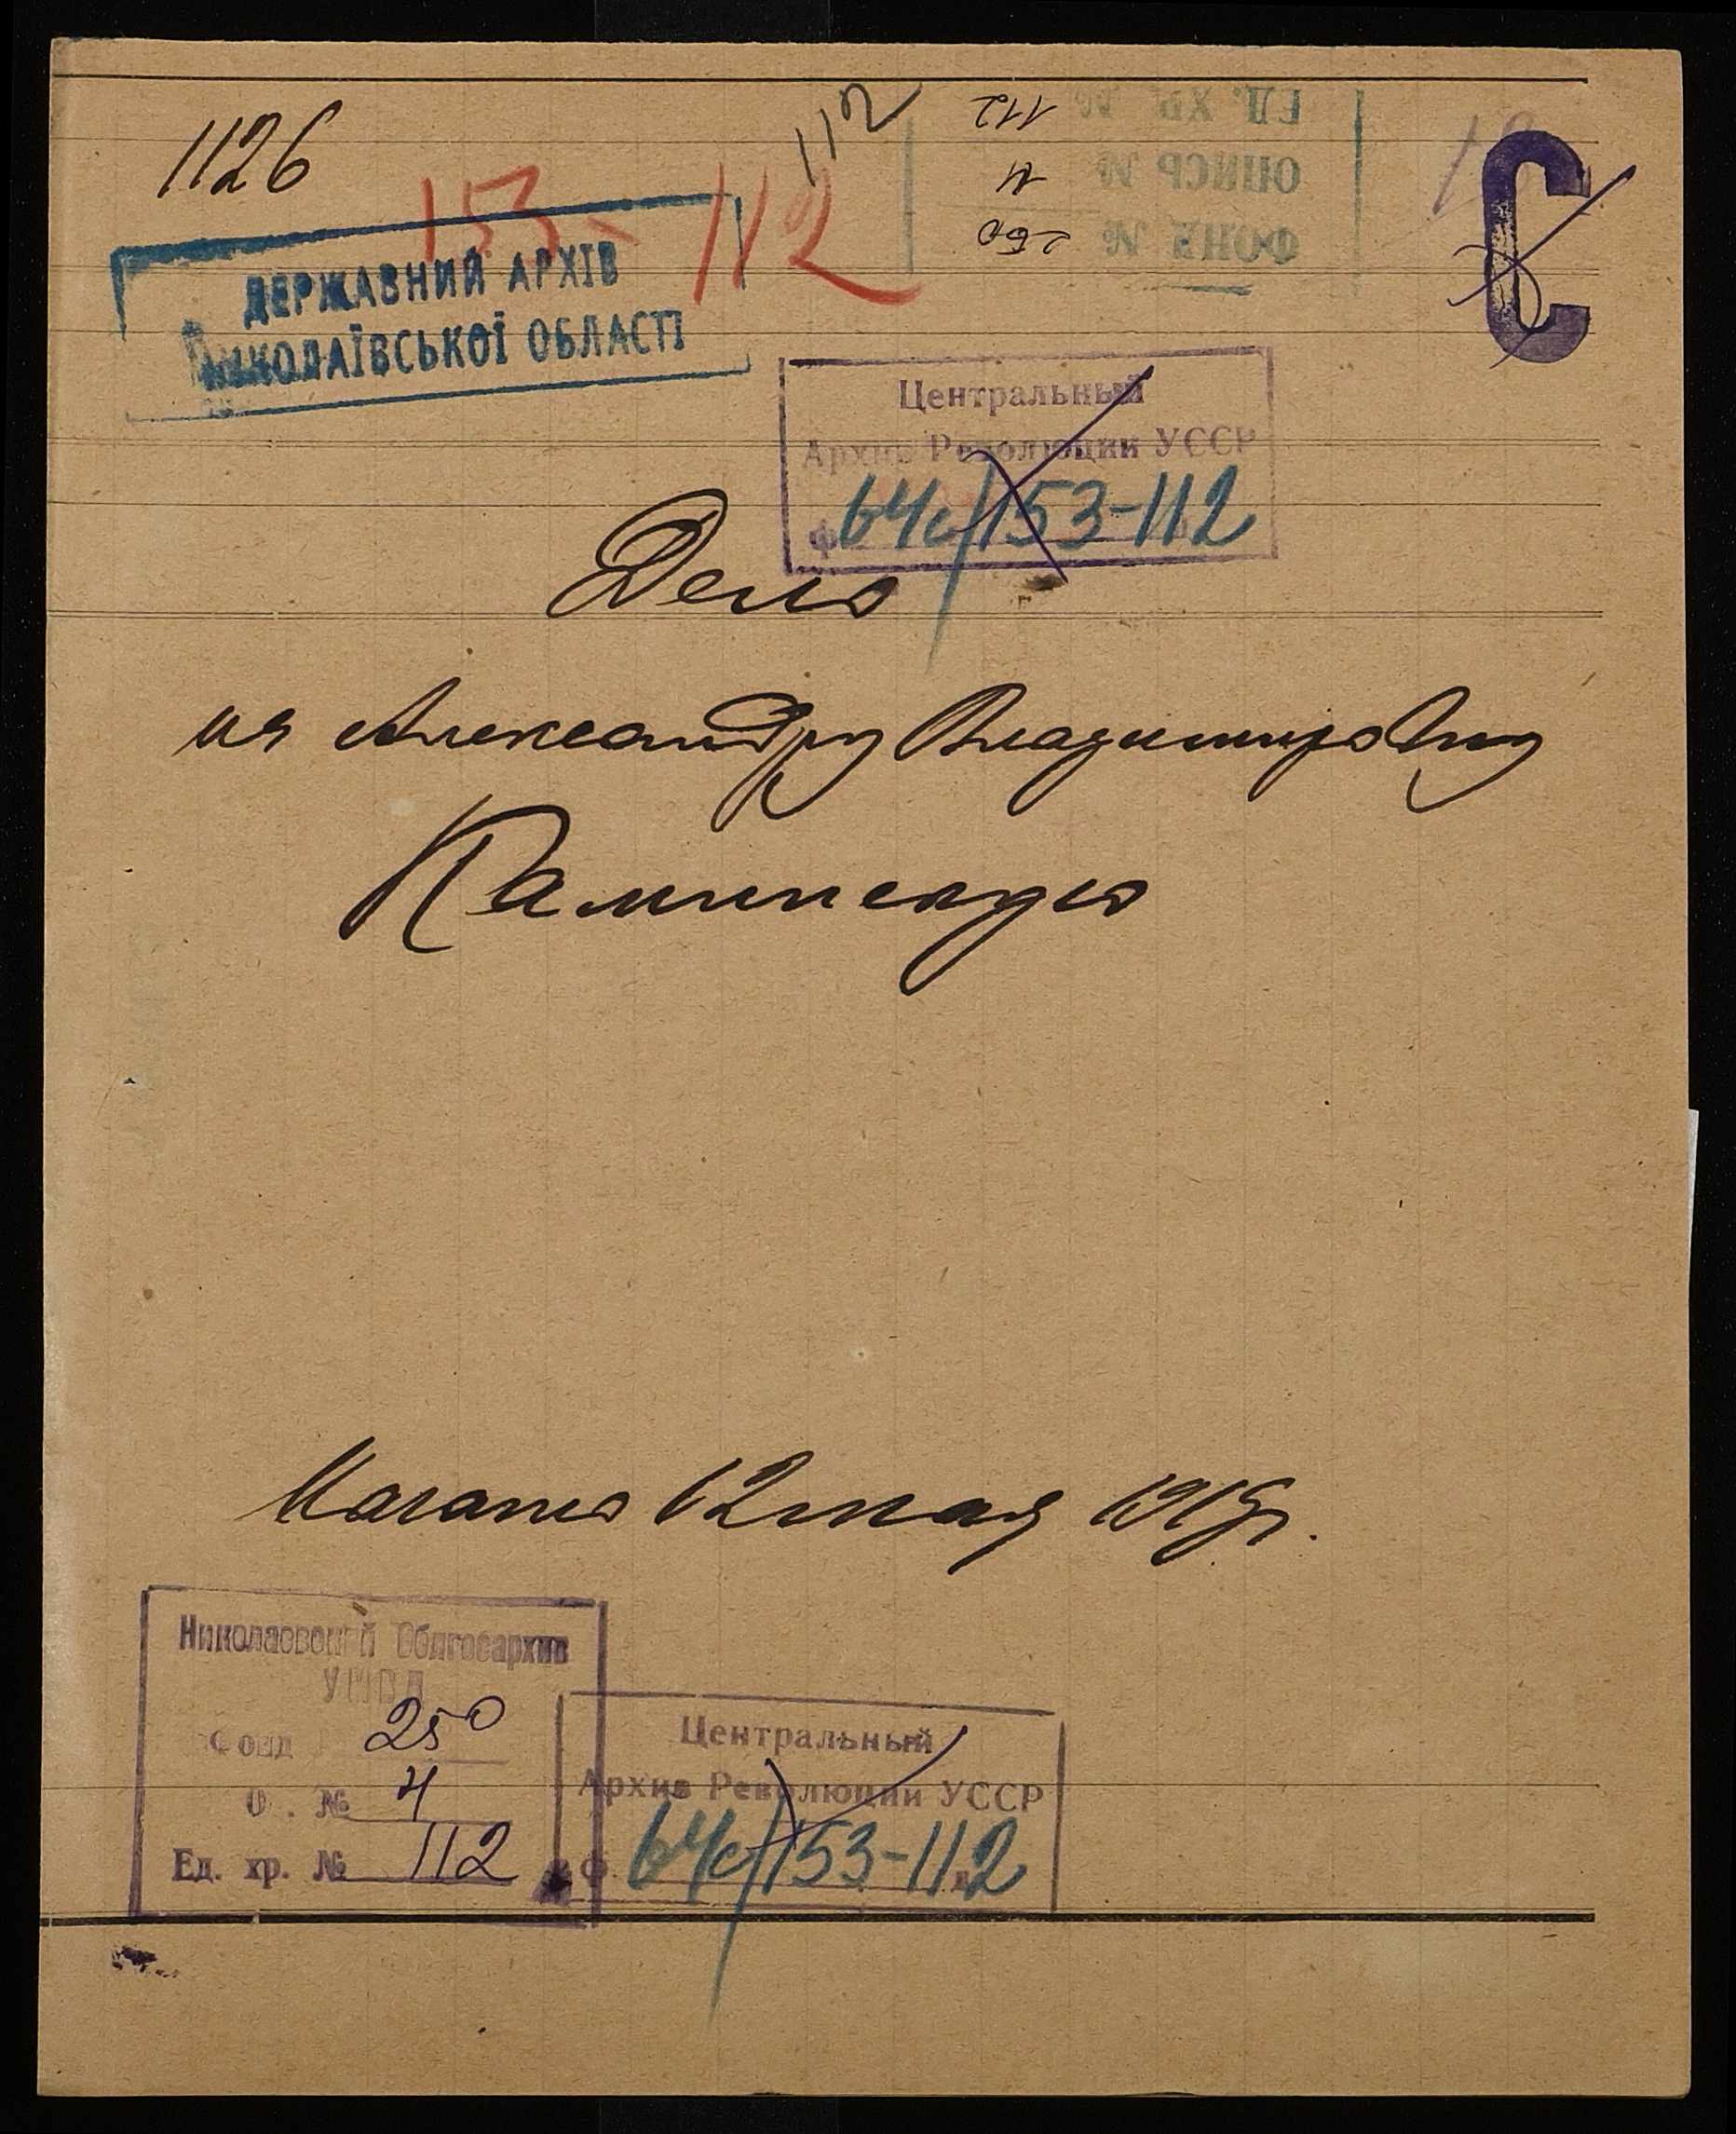 1126
112
153-112
ЕД. ХР. № 112
ОПИСЬ № 4
ФОНД № 250
С
ДЕРЖАВНИЙ АРХІВ
МИКОЛАЇВСЬКОЇ ОБЛАСТІ
Центральный
Архив Революции УССР
ф 64с/153-112
Дело
на Александру Владимировну
Каминскую
Начато 12 мая 1919 г.
Николаевский Облгосархив
УМВД
Фонд 250
О. № 4
Ед. хр. № 112
Центральный
Архив Революции УССР
ф. 64с/153-112